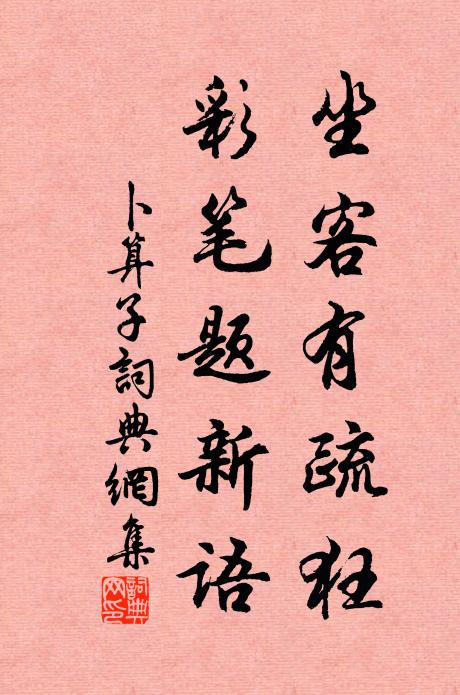 坐客有疏狂
彩笔题新语
卜算子詞典網集
詞典网印